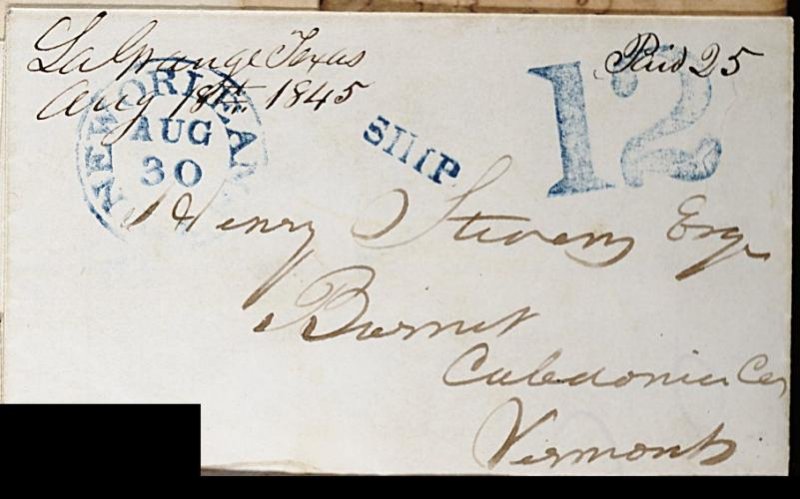 La Grange Texas
Aug 18th 1845
Paid 25
NEW ORLEANS
AUG
30
SHIP
12
Henry Stevens Esqr
Barnet
Caledonia Co
Vermont